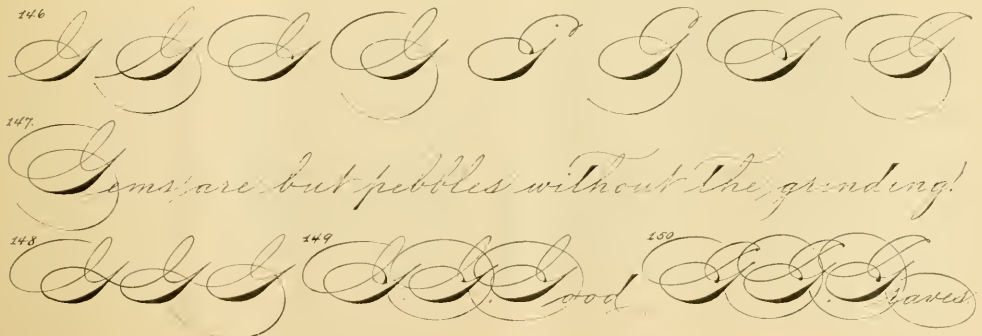 146 G G G G G G G G
147. Gems are but pebbles without the grinding!
148 G G G 149 G. G. Good 150 G. G. Graves.